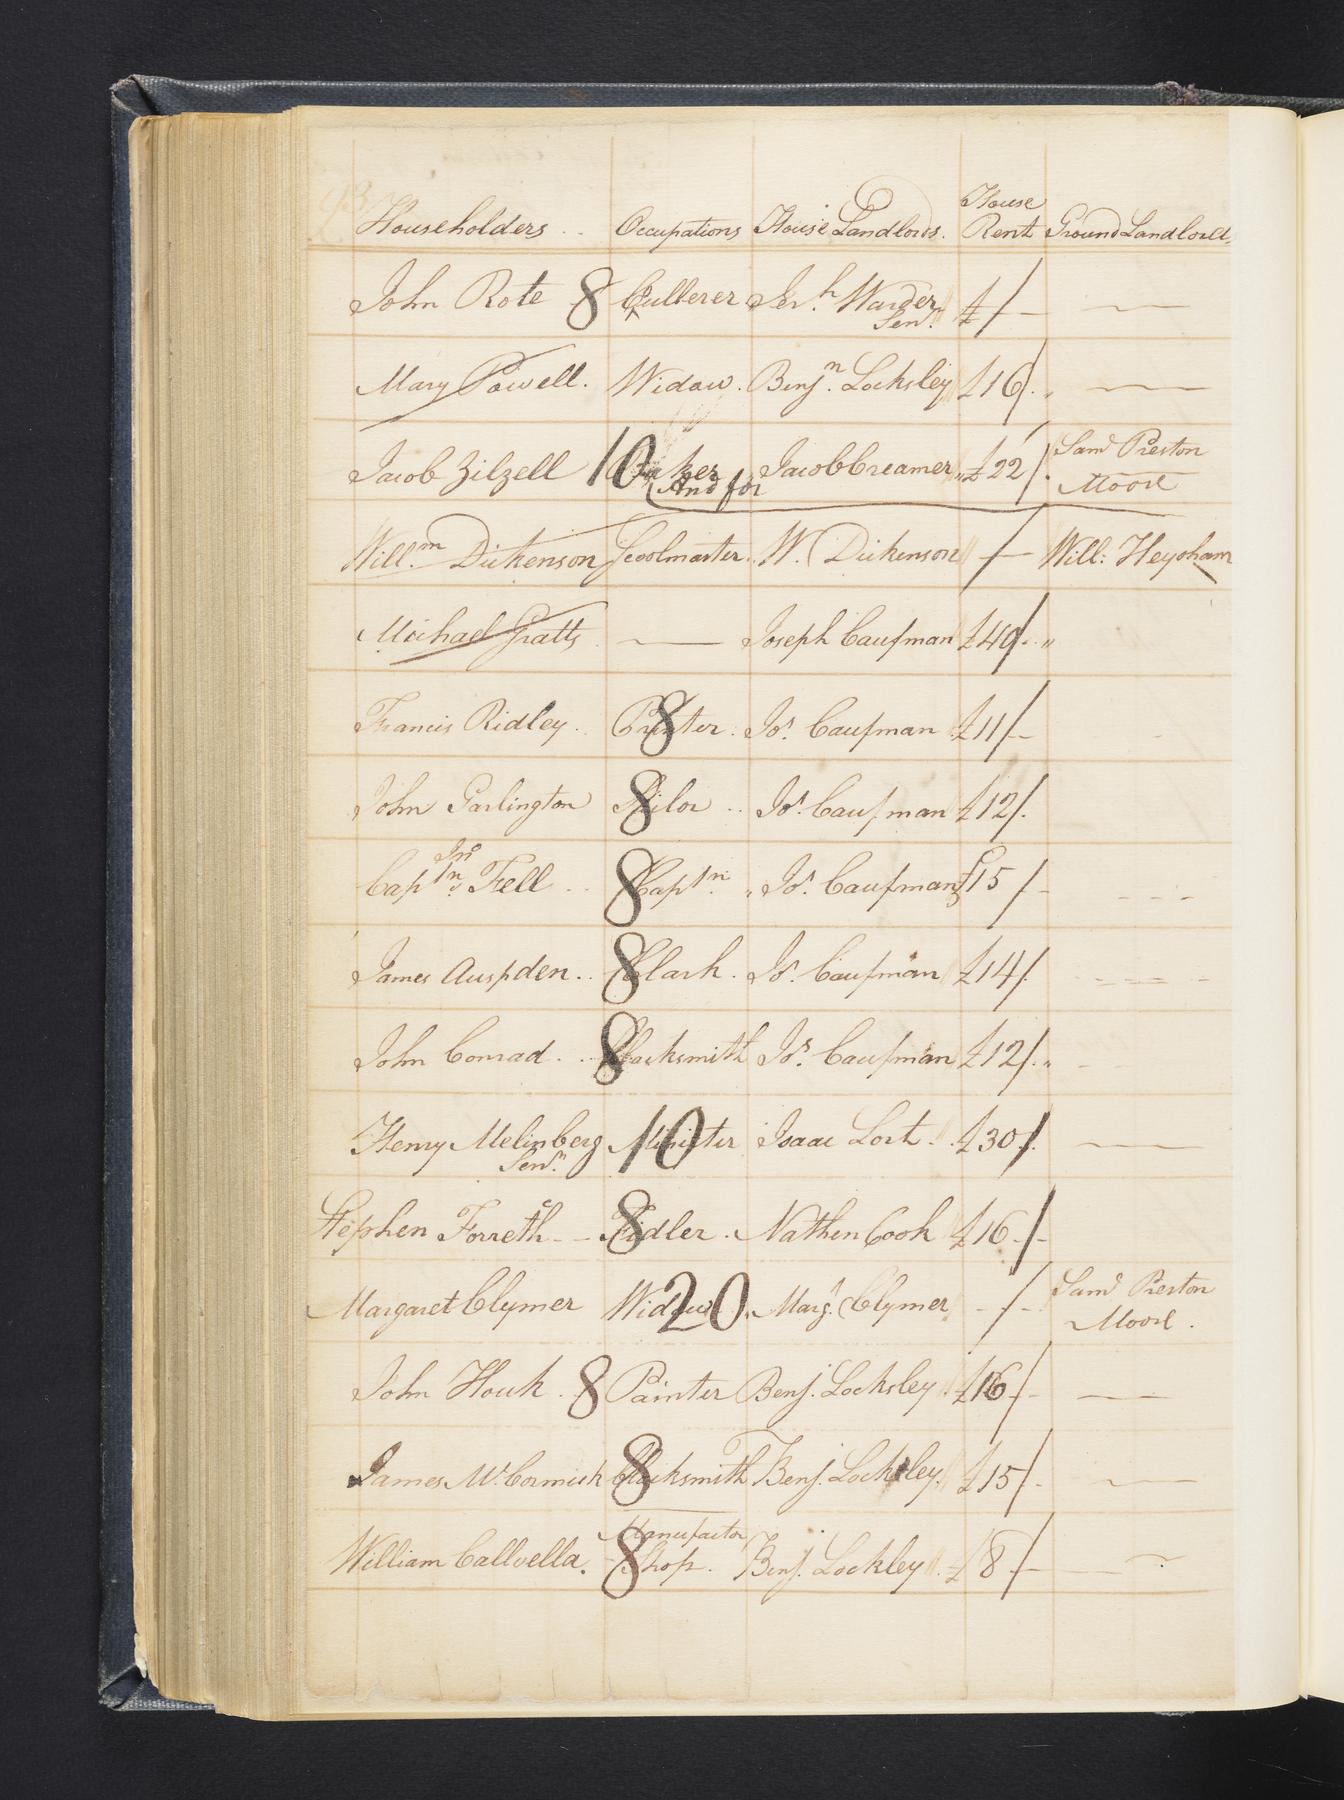 Householders .. Occupations House Landlords. House Rent Ground Landlord
John Rote 8 Cutlerer Jerh. Warder Senr. £ / —
Mary Powell. Widaw. Benjn. Locksley £16/. „ —
Jacob Zilzell 10 Baker And for Jacob Creamer „ £22/. Saml Preston Moore
Willm. Dickenson Scoolmaster. W. Dickenson / — Will: Heysham
Michael Gratts — Joseph Caufman £40/. „
Francis Ridley .. 8 Printer. Jos. Caufman £11/-
John Parlington 8 .. Jos. Caufman £12/.
Captn. Jno Fell .. 8 Captn. „ Jos. Caufman £15/- - - -
James Auspden .. 8 Clark. Jos. Caufman £14/.
John Conrad. .. 8 Blacksmith Jos. Caufman £12/. „
Henry Melinberg Senr. 10 Minister Isaac Lort. £30/. —
Stephen Forreth - - 8 Fidler. Nathen Cook £16./-
Margaret Clymer Widaw 20. Marg. Clymer - / - Saml Preston Moore.
John Houk. 8 Painter Benj. Locksley. £16/- —
James McCormick 8 Blacksmith Benj. Locksley. £15/- —
William Callvella. 8 Manufactor Shop. Benj. Lockley. £8/- —